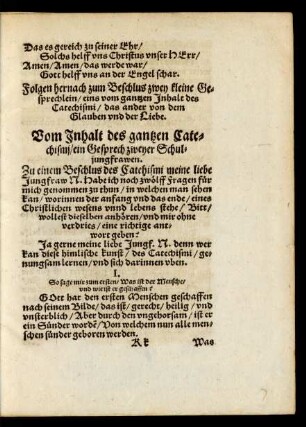 Das es gereich zu seiner Ehr/
Solchs helff vns Christus vnser HErr/
Amen/Amen/das werde war/
Gott helff vns an der Engel schar.
Folgen hernach zum Beschlus zwey kleine Ge-
sprechlein/eins vom gantzen Inhalt des
Catechismi/das ander von dem
Glauben vnd der Liebe.
Vom Inhalt des gantzen Cate-
chismi/ein Gesprech zweyer Schul-
jungfrawen.
Zu einem Beschlus des Catechismi meine liebe
Jungfraw N. Habe ich noch zwölff Fragen für
mich genommen zu thun/in welchen man sehen
kan/worinnen der anfang vnd das ende/eines
Christlichen wesens vnnd lebens stehe/Bitt/
wollest dieselben anhören/vnd mir ohne
verdries/eine richtige ant-
wort geben?
Ja gerne meine liebe Jungf. N. denn wer
kan diese himlische kunst/des Catechismi/ge-
nungsam lernen/vnd sich darinnen vben.
I.
So sage mir zum ersten/Was ist der Mensche/
vnd wie ist er geschaffen?
GOtt hat den ersten Menschen geschaffen
nach seinem Bilde/das ist/gerecht/heilig/vnd
vnsterblich/Aber durch den vngehorsam/ist er
ein Sünder wordē/Von welchem nun alle men-
schen sünder geboren werden.
R k Was